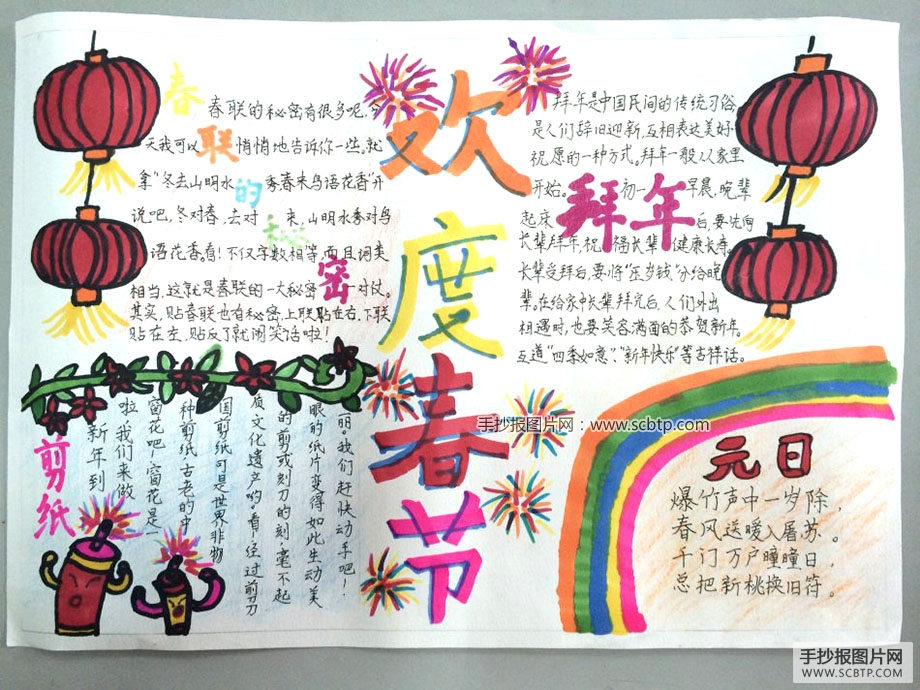 欢度春节
春联的秘密
春联的秘密有很多呢,今
天我可以悄悄地告诉你一些。就
拿"冬去山明水秀春来鸟语花香"开
说吧,冬对春,去对来,山明水秀对鸟
语花香,看!不仅字数相等,而且词类
相当,这就是春联的一大秘密——对仗。
其实,贴春联也有秘密,上联贴在右,下联
贴在左,贴反了就闹笑话啦!
拜年
拜年是中国民间的传统习俗
是人们辞旧迎新,互相表达美好
祝愿的一种方式。拜年一般从家里
开始。初一早晨,晚辈
起床后,要先向
长辈拜年,祝福长辈健康长寿。
长辈受拜后,要将"压岁钱"分给晚
辈。在给家中长辈拜完后,人们外出
相遇时,也要笑容满面的恭贺新年,
互道"四季如意"、"新年快乐"等吉祥话。
剪纸
新年到
啦!我们来做
窗花吧!窗花是一
种剪纸古老的中
国剪纸可是世界非物
质文化遗产哟。看!经过剪刀
的剪或刻刀的刻,毫不起
眼的纸片变得如此生动美
丽。我们赶快动手吧!
元日
爆竹声中一岁除,
春风送暖入屠苏。
千门万户曈曈日,
总把新桃换旧符。
手抄报图片网:www.scbtp.com
手抄报图片网
WWW.SCBTP.COM